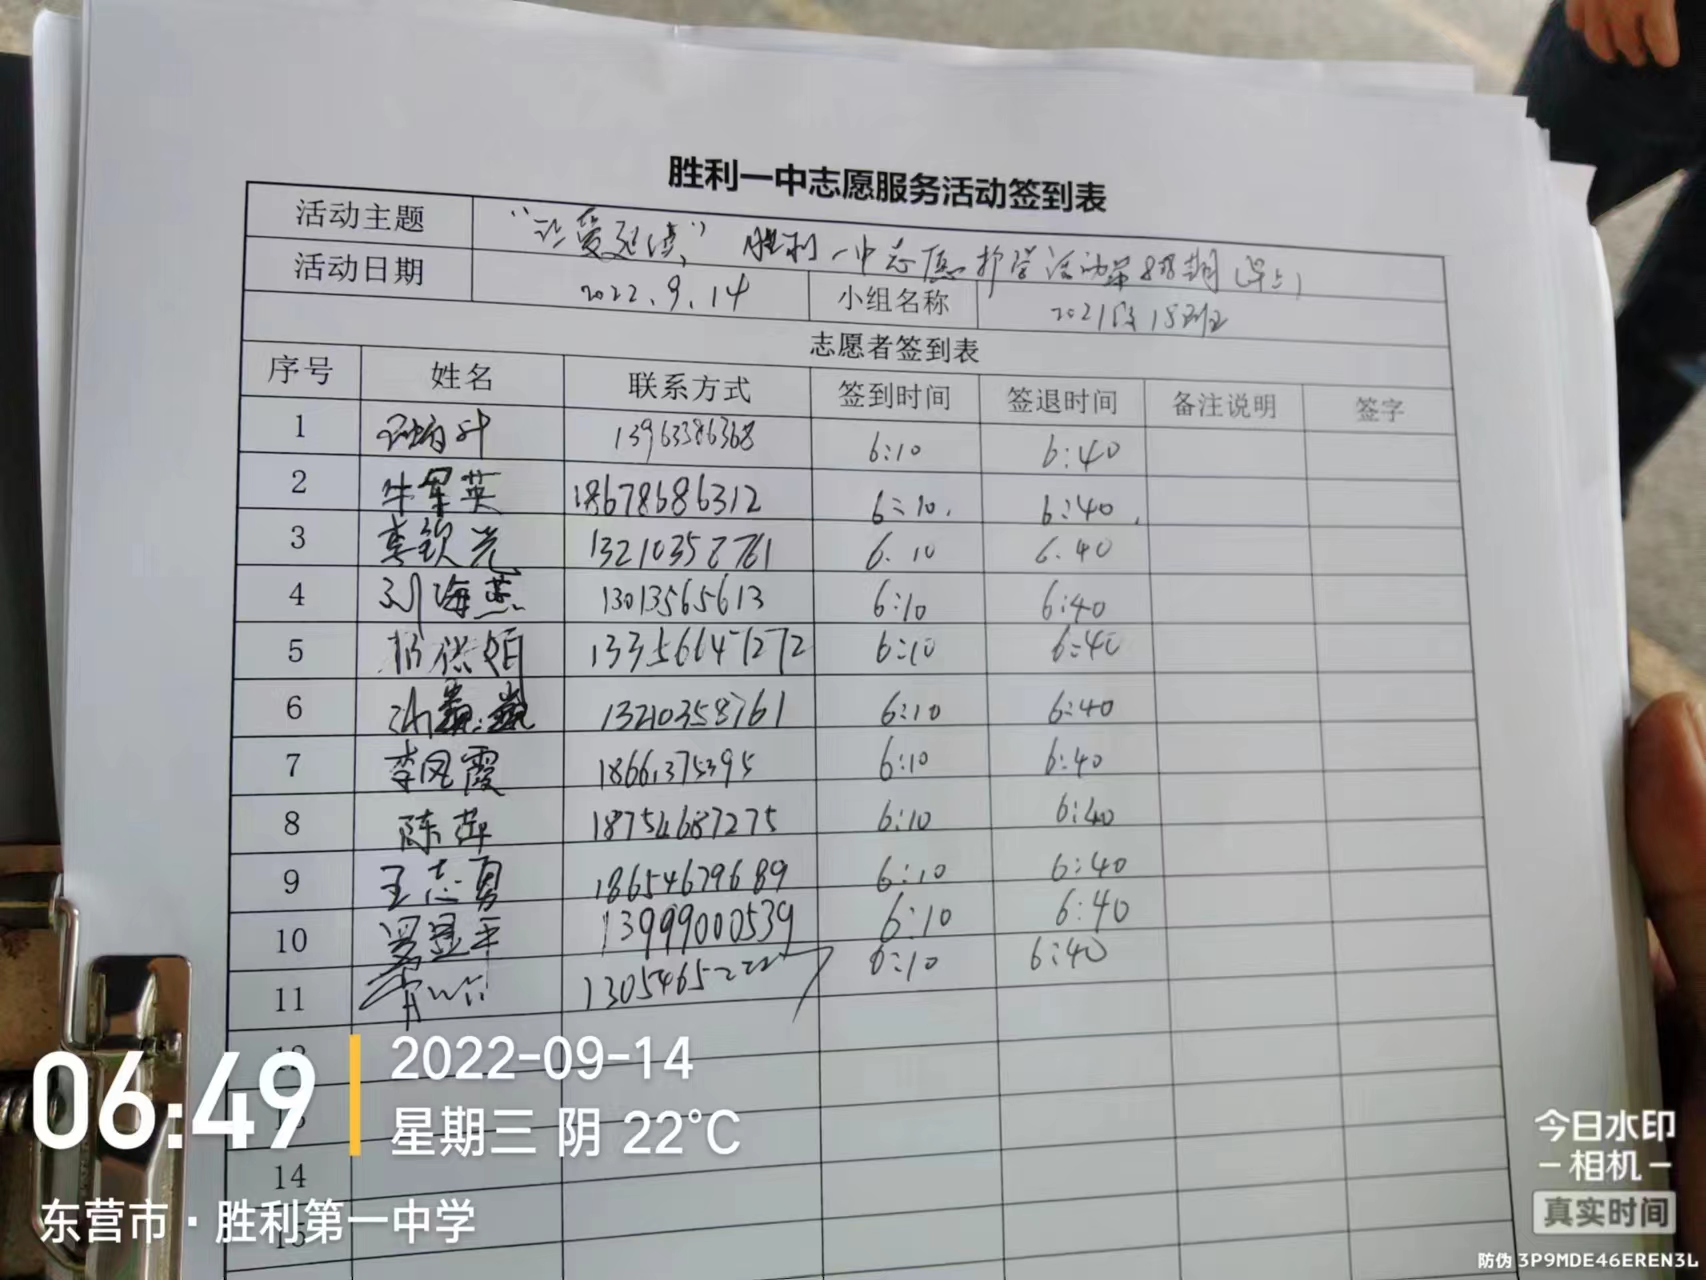 胜利一中志愿服务活动签到表
活动主题 “让爱延续” 胜利一中志愿护学活动第 期(早上)
活动日期 2022.9.14 小组名称 2021级18班
志愿者签到表
序号 姓名 联系方式 签到时间 签退时间 备注说明 签字
1 13963386368 6:10 6:40
2 牛军英 18678686312 6:10. 6:40.
3 李钦光 13210358761 6.10 6.40
4 刘海燕 13013565613 6:10 6:40
5 6:10 6:40
6 13210358761 6:10 6:40
7 李凤霞 18661375395 6:10 6:40
8 陈萍 18754687275 6:10 6:40
9 王志勇 18654679689 6:10 6:40
10 13999000539 6:10 6:40
11 6:10 6:40
14
15
06:49
2022-09-14
星期三 阴 22°C
东营市·胜利第一中学
今日水印
-相机-
真实时间
防伪 3P9MDE46EREN3L